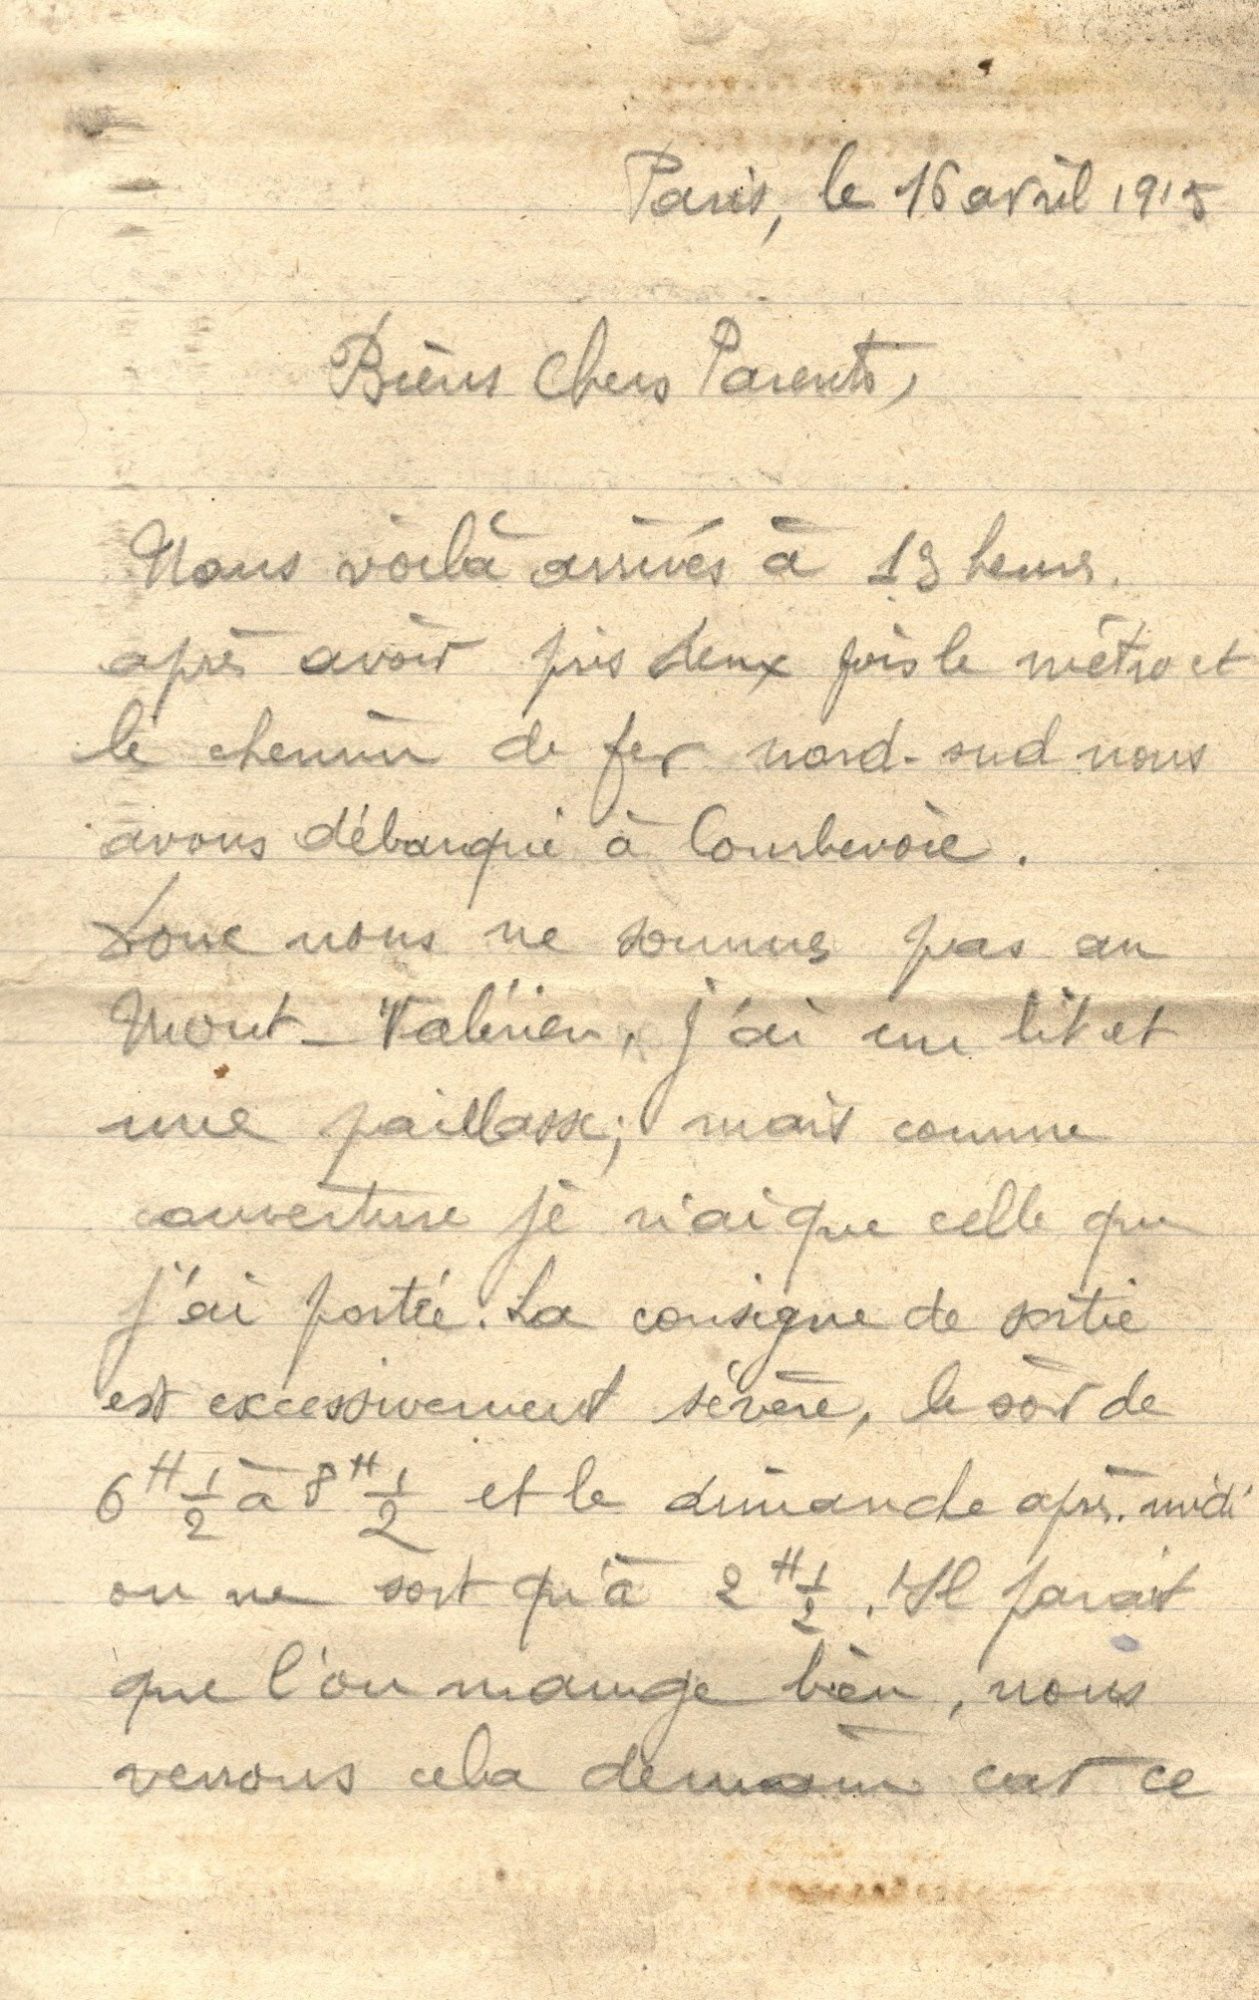 Paris, le 16 avril 1915
Biens Chers Parents,
Nous voilà arrivés à 13 heures.
après avoir pris deux fois le métro et
le chemin de fer nord-sud nous
avons débarqué à Courbevoie.
Donc nous ne sommes pas au
Mont-Valérien, j'ai un lit et
une paillasse; mais comme
couverture je n'ai que celle que
j'ai portée. La consigne de sortie
est excessivement sévère, le soir de
6 H 1/2 à 8 H 1/2 et le dimanche après-midi
on ne sort qu'à 2 H 1/2. Il parait
que l'on mange bien, nous
verrons cela demain car ce